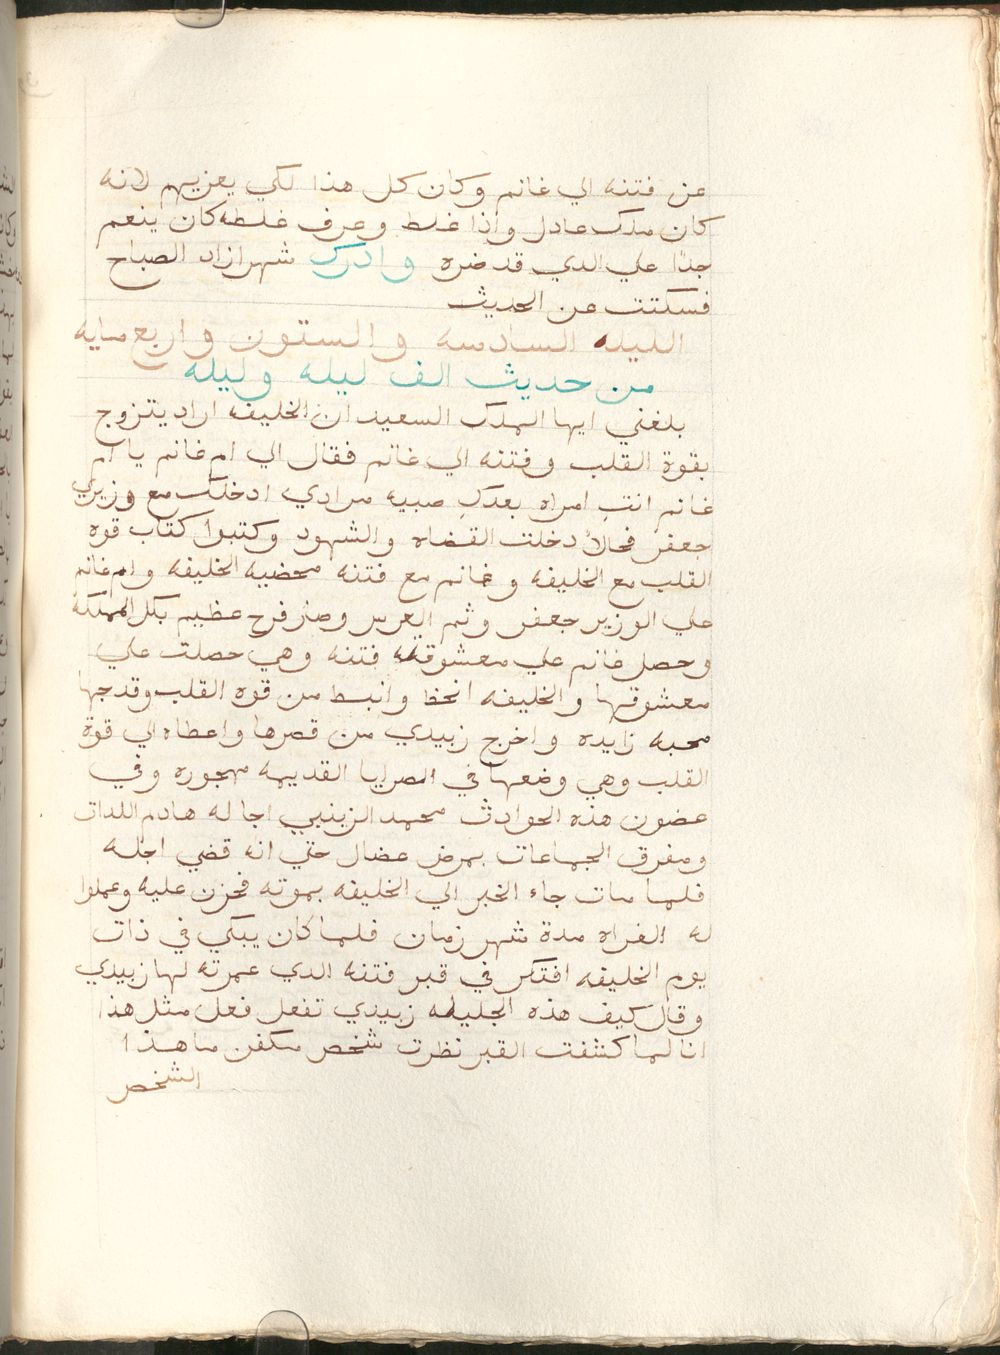 عن فتنه الي غانم وكان كل هذا لكي يعزيهم لانه
كان ملك عادل واذا غلط وعرف غلطه كان ينعم
جدًا علي الدي قد ضره وادرك شهرازاد الصباح
فسكتت عن الحديث
الليله السادسه والستون واربع مايه
من حديث الف ليله وليله
بلغني ايها الملك السعيد ان الخليفه اراد يتزوج
بقوة القلب وفتنه الي غانم فقال الي ام غانم يا ام
غانم انتِ امراه بعدكِ صبيه مرادي ادخلك مع وزيري
جعفر فحالاً دخلت القضاه والشهود وكتبوا كتاب قوه
القلب مع الخليفه وغانم مع فتنه محضيه الخليفه وام غانم
علي الوزير جعفر وتم العرس وصار فرح عظيم بكل المملكه
وحصل غانم علي معشوقته فتنه وهي حصلت علي
معشوقها والخليفه انحظ وانبسط من قوه القلب وقد حبها
محبه زايده واخرج زبيدي من قصرها واعطاه الي قوة
القلب وهي وضعها في الصرايا القديمه مهجوره وفي
غضون هذه الحوادث محمد الزينبي اجا له هادم اللدات
ومفرق الجماعات بمرض عضال حتي انه قضي اجله
فلما مات جاء الخبر الي الخليفه بموته فحزن عليه وعملوا
له القراه مدة شهر زمان فلما كان يبكي في ذات
يوم الخليفه افتكر في قبر فتنه الدي عمرته لها زبيدي
وقال كيف هذه الجليله زبيدي تفعل فعل مثل هذا
انا لما كشفت القبر نظرت شخص مكفن ما هذا
الشخص